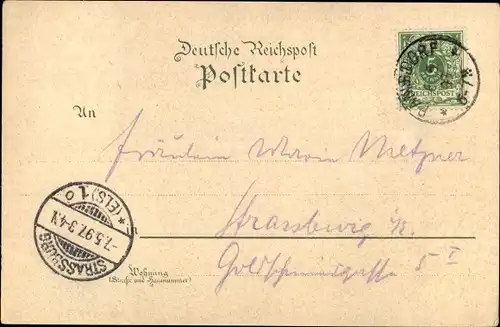 Deutsche Reichspost
Postkarte
5
REICHSPOST
An
Fräulein Metzner
in Strassburg i/E.
Goldschmiedgasse 5 I
Wohnung
(Straße und Hausnummer)
STRASSBURG
* (ELS) 1 o
-7.5.97. 3-4.N